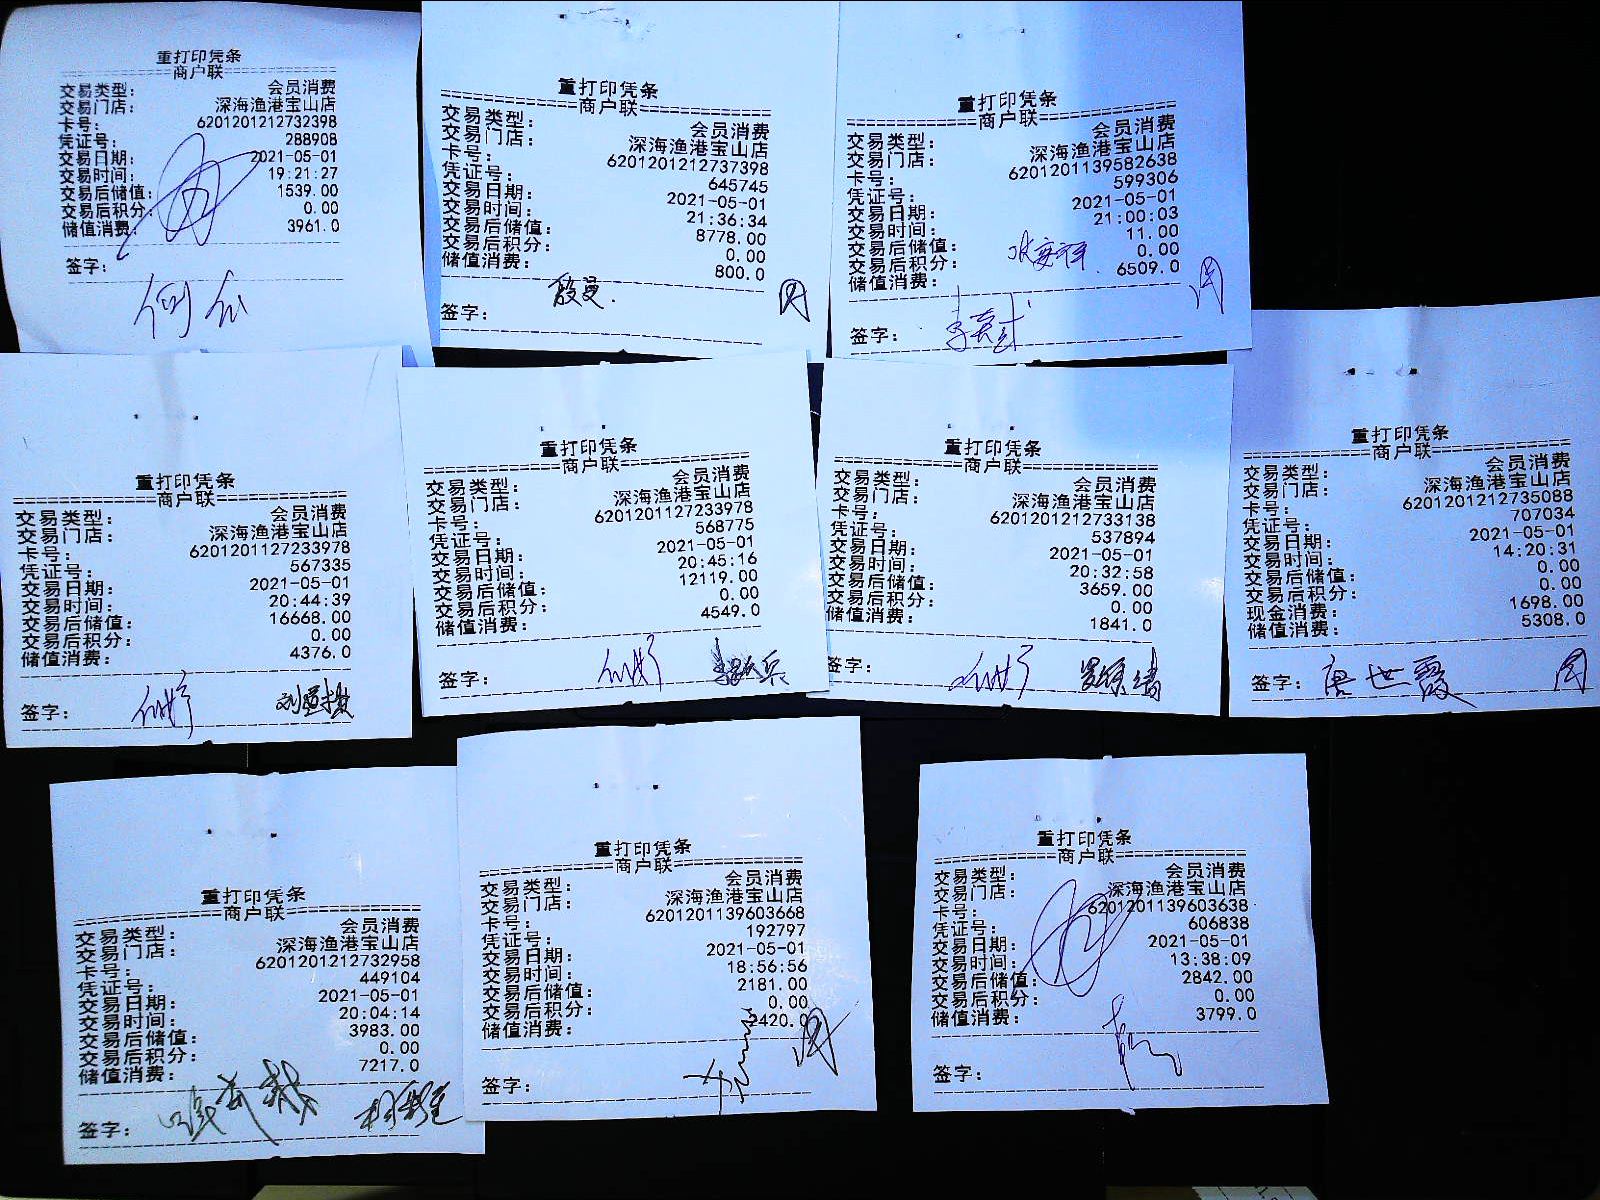 重打印凭条
================商户联================
交易类型: 会员消费
交易门店: 深海渔港宝山店
卡号: 6201201212732398
凭证号: 288908
交易日期: 2021-05-01
交易时间: 19:21:27
交易后储值: 1539.00
交易后积分: 0.00
储值消费: 3961.0
签字:
重打印凭条
================商户联================
交易类型: 会员消费
交易门店: 深海渔港宝山店
卡号: 6201201212737398
凭证号: 645745
交易日期: 2021-05-01
交易时间: 21:36:34
交易后储值: 8778.00
交易后积分: 0.00
储值消费: 800.0
签字:
重打印凭条
================商户联================
交易类型: 会员消费
交易门店: 深海渔港宝山店
卡号: 6201201139582638
凭证号: 599306
交易日期: 2021-05-01
交易时间: 21:00:03
交易后储值: 11.00
交易后积分: 0.00
储值消费: 6509.0
签字:
重打印凭条
================商户联================
交易类型: 会员消费
交易门店: 深海渔港宝山店
卡号: 6201201127233978
凭证号: 567335
交易日期: 2021-05-01
交易时间: 20:44:39
交易后储值: 16668.00
交易后积分: 0.00
储值消费: 4376.0
签字:
重打印凭条
================商户联================
交易类型: 会员消费
交易门店: 深海渔港宝山店
卡号: 6201201127233978
凭证号: 568775
交易日期: 2021-05-01
交易时间: 20:45:16
交易后储值: 12119.00
交易后积分: 0.00
储值消费: 4549.0
签字:
重打印凭条
================商户联================
交易类型: 会员消费
交易门店: 深海渔港宝山店
卡号: 6201201212733138
凭证号: 537894
交易日期: 2021-05-01
交易时间: 20:32:58
交易后储值: 3659.00
交易后积分: 0.00
储值消费: 1841.0
签字:
重打印凭条
================商户联================
交易类型: 会员消费
交易门店: 深海渔港宝山店
卡号: 6201201212735088
凭证号: 707034
交易日期: 2021-05-01
交易时间: 14:20:31
交易后储值: 0.00
交易后积分: 0.00
现金消费: 1698.00
储值消费: 5308.0
签字: 唐世霞
重打印凭条
================商户联================
交易类型: 会员消费
交易门店: 深海渔港宝山店
卡号: 6201201212732958
凭证号: 449104
交易日期: 2021-05-01
交易时间: 20:04:14
交易后储值: 3983.00
交易后积分: 0.00
储值消费: 7217.0
签字:
重打印凭条
================商户联================
交易类型: 会员消费
交易门店: 深海渔港宝山店
卡号: 6201201139603668
凭证号: 192797
交易日期: 2021-05-01
交易时间: 18:56:56
交易后储值: 2181.00
交易后积分: 0.00
储值消费: 2420.0
签字:
重打印凭条
================商户联================
交易类型: 会员消费
交易门店: 深海渔港宝山店
卡号: 6201201139603638
凭证号: 606838
交易日期: 2021-05-01
交易时间: 13:38:09
交易后储值: 2842.00
交易后积分: 0.00
储值消费: 3799.0
签字: